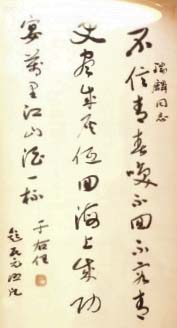 瑞麟同志
不信青春喚不回不容青
史盡成灰低回海上成功
宴萬里江山酒一杯
于右任
題民元照片